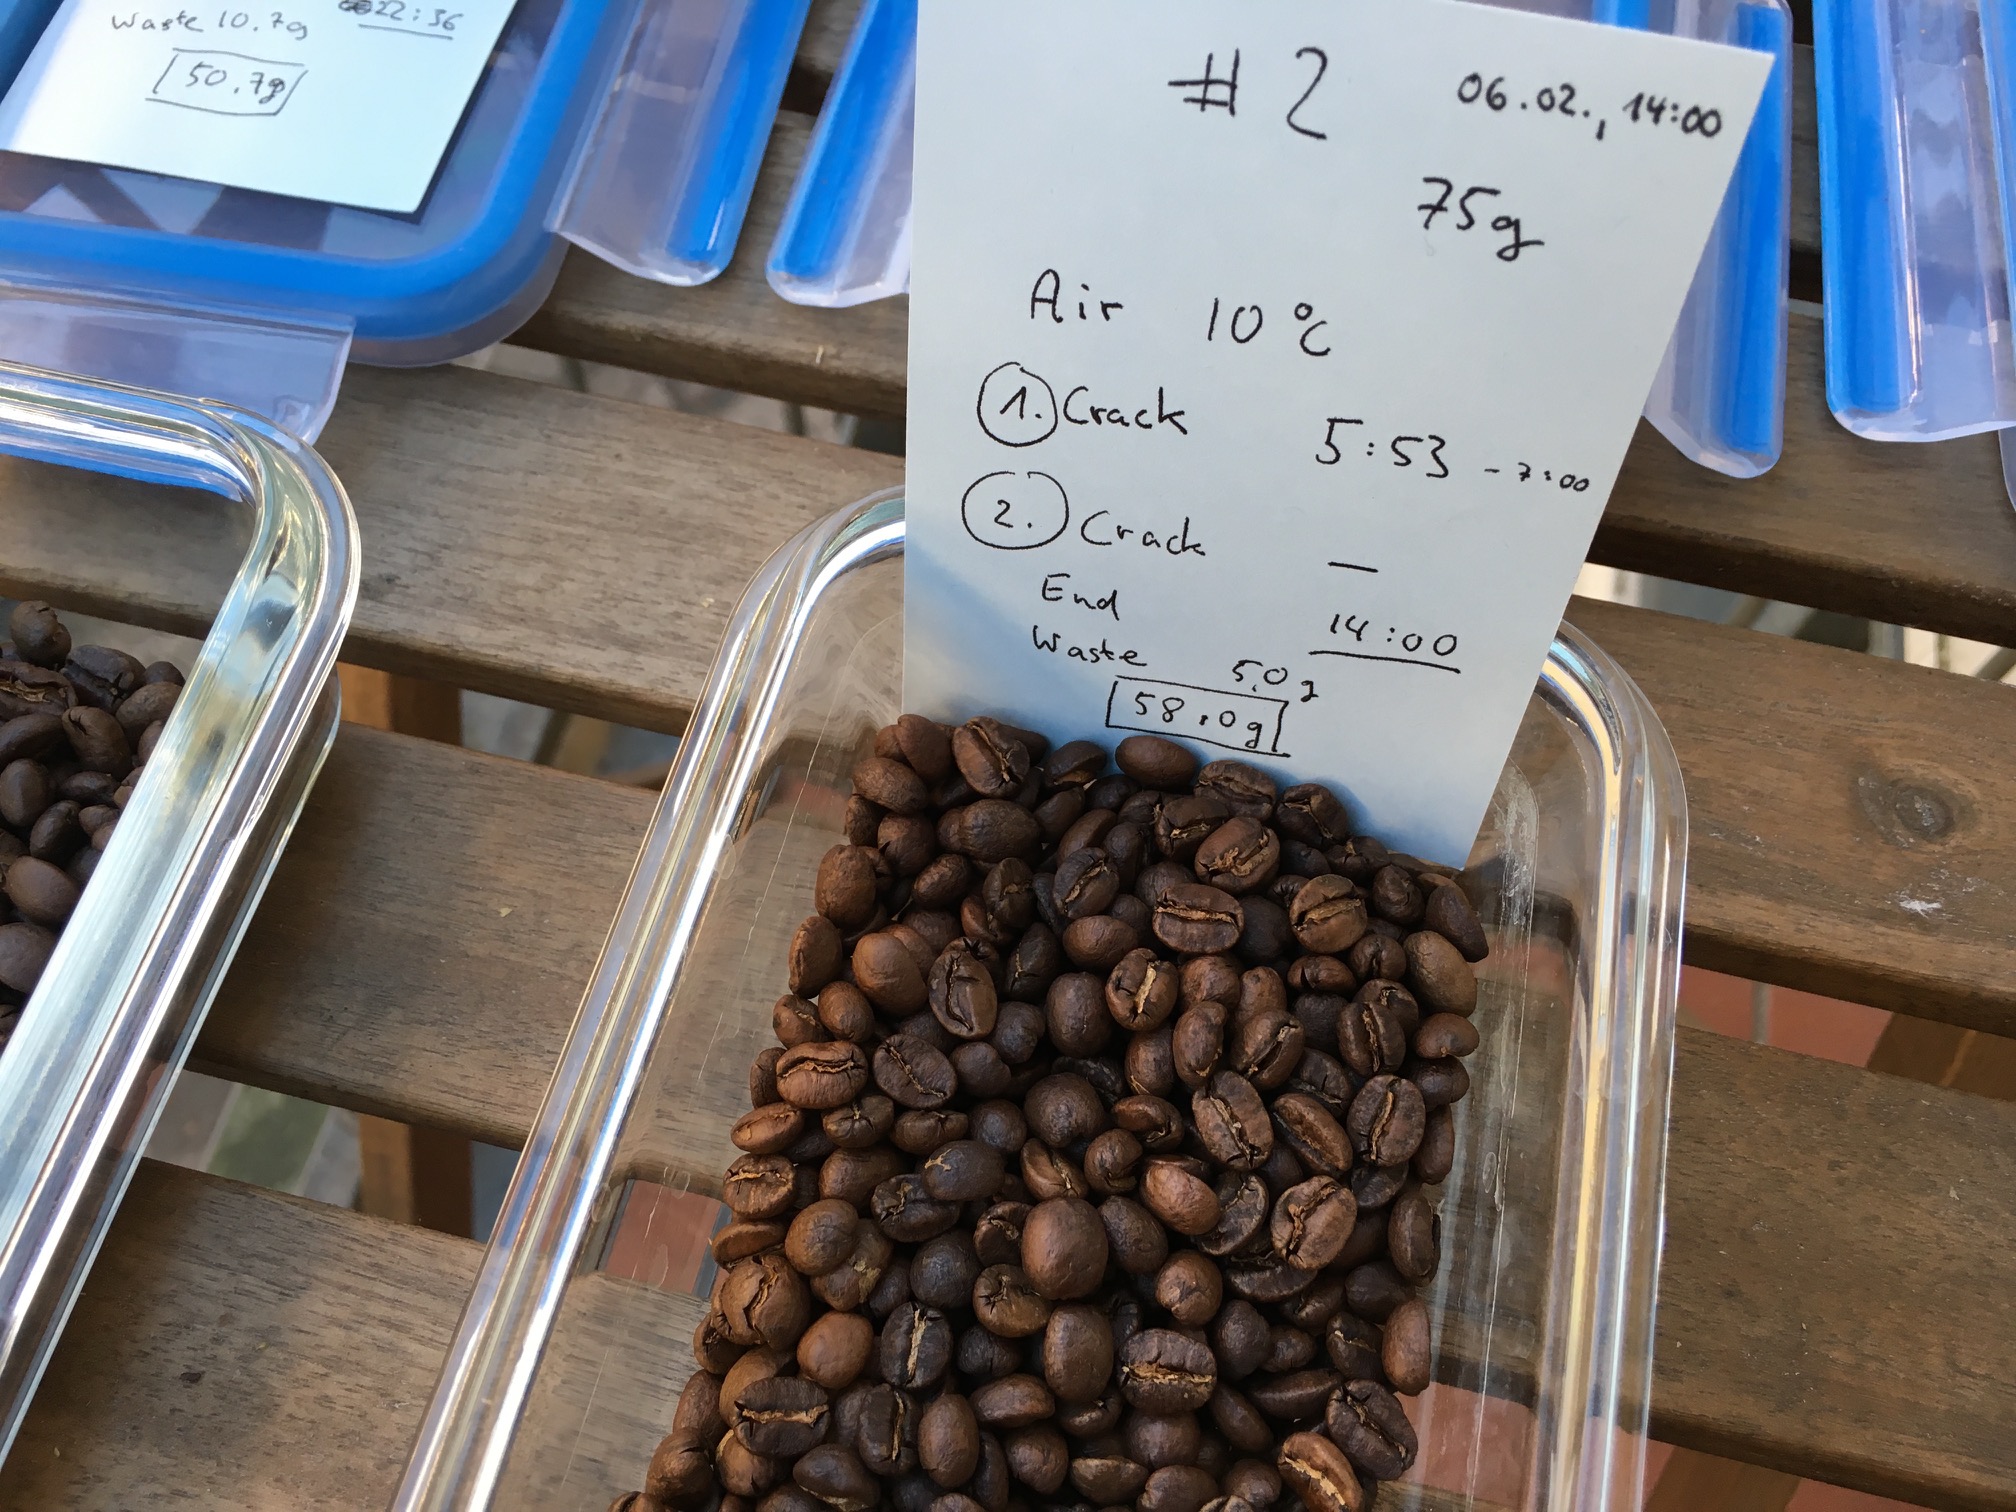 Waste 10.7g 22:36
50.7g
# 2 06.02., 14:00
75g
Air 10°C
1. Crack 5:53 - 7:00
2. Crack —
End 14:00
Waste 5,0g
58.0g